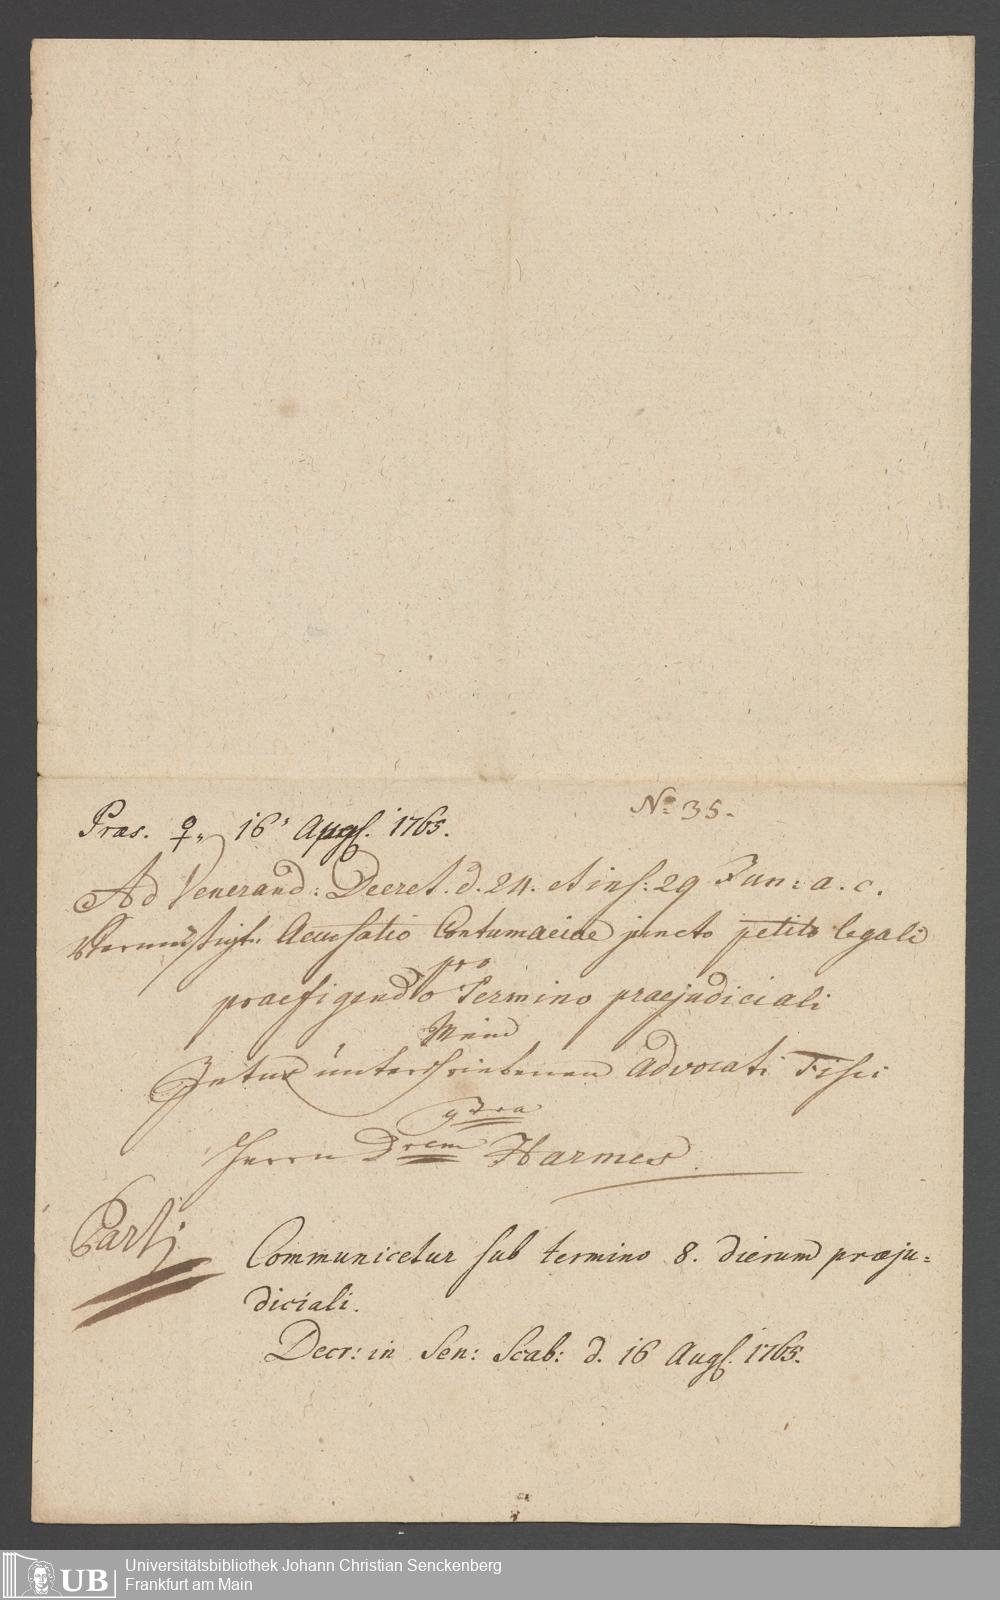 No: 35.
Præs. ♀,, 16' Augs. 1765.
Ad Venerand: Decret. d. 24. et ins: 29 Jun: a. c.
Accusatio Contumaciae juncto petito legali
pro
praefigendo Termino praejudiciali
Mein
unterschriebenen Advocati Fisci
Herrn Drem Harmes.
Parti
Communicetur sub termino 8. dierum præju=
diciali.
Decr: in Sen: Scab: d. 16 Augs. 1765.
UB
Universitätsbibliothek Johann Christian Senckenberg
Frankfurt am Main